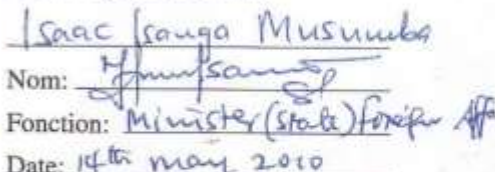 Isaac Isanga Musumba
Nom:
Fonction: Minister (State) foreign Affa
Date: 14th may 2010